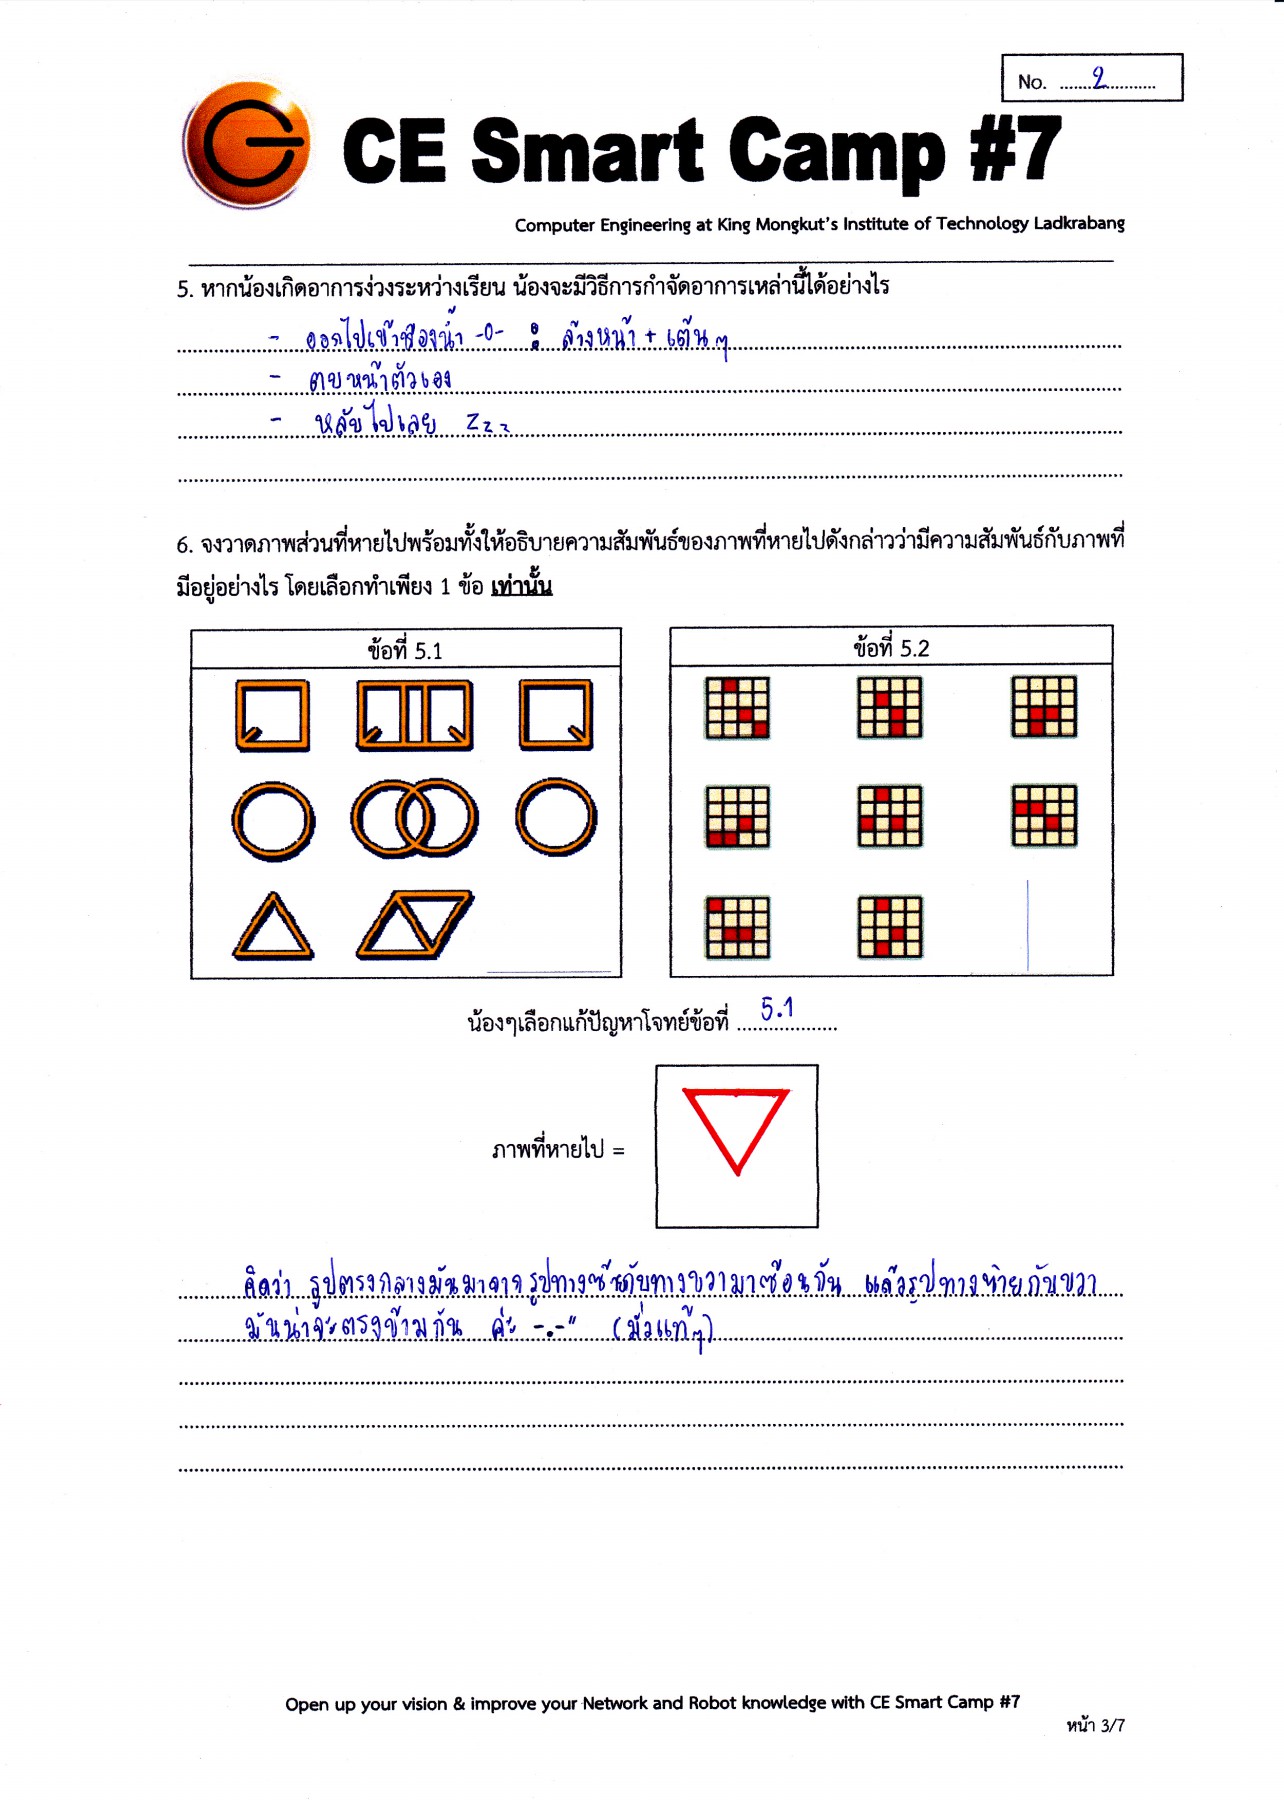 No. ........2............
CE Smart Camp #7
Computer Engineering at King Mongkut's Institute of Technology Ladkrabang
5. หากน้องเกิดอาการง่วงระหว่างเรียน น้องจะมีวิธีการกำจัดอาการเหล่านี้ได้อย่างไร
- ออกไปเข้าห้องน้ำ -0- : ล้างหน้า + เต้นๆ
- ตบหน้าตัวเอง
- หลับไปเลย zzz
6. จงวาดภาพส่วนที่หายไปพร้อมทั้งให้อธิบายความสัมพันธ์ของภาพที่หายไปดังกล่าวว่ามีความสัมพันธ์กับภาพที่
มีอยู่อย่างไร โดยเลือกทำเพียง 1 ข้อ เท่านั้น
ข้อที่ 5.1
ข้อที่ 5.2
น้องๆเลือกแก้ปัญหาโจทย์ข้อที่ 5.1
ภาพที่หายไป =
คิดว่า รูปตรงกลางมันมาจากรูปทางซ้ายกับทางขวามาซ้อนกัน แล้วรูปทางซ้ายกับขวา
มันน่าจะตรงข้ามกัน ค่ะ -.-" (มั่วแท้ๆ)
Open up your vision & improve your Network and Robot knowledge with CE Smart Camp #7
หน้า 3/7